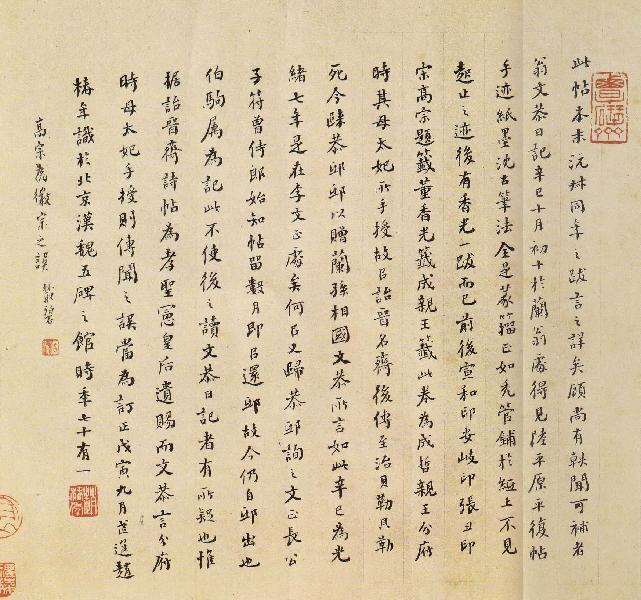 此帖本末沅叔同年之跋言之詳矣顧尚有軼聞可補者
翁文恭日記辛巳十月初十於蘭翁處得見陸平原平復帖
手迹紙墨沈古筆法全是篆籀正如禿管鋪於紙上不見
起止之迹後有香光一跋而已前後宣和印安岐印張丑印
宋高宗題籤董香光籤成親王籤此卷為成哲親王分府
時其母太妃所手授故以詒晉名齋後傳至治貝勒貝勒
死今歸恭邸邸以贈蘭孫相國文恭所言如此辛巳為光
緒七年是在李文正處矣何以又歸恭邸詢之文正長公
子符曾侍郎始知帖留數月即以還邸故今仍自邸出也
伯駒屬為記此不使後之讀文恭日記者有所疑也惟
据詒晉齋詩帖為孝聖憲皇后遺賜而文恭言分府
時母太妃手授則傳聞之誤當為訂正戊寅九月芷進趙
椿年識於北京漢魏五碑之館時年七十有一
高宗為徽宗之誤